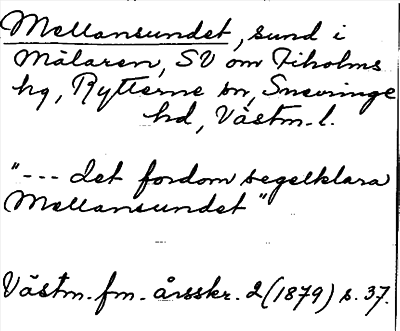 Mellansundet, sund i
Mälaren, SV om Tiholms
hg, Rytterne sn, Snevringe
hd, Västm. l.
"--- det fordom segelklara
Mellansundet"
Västm. fm. årsskr. 2 (1879) s. 37.